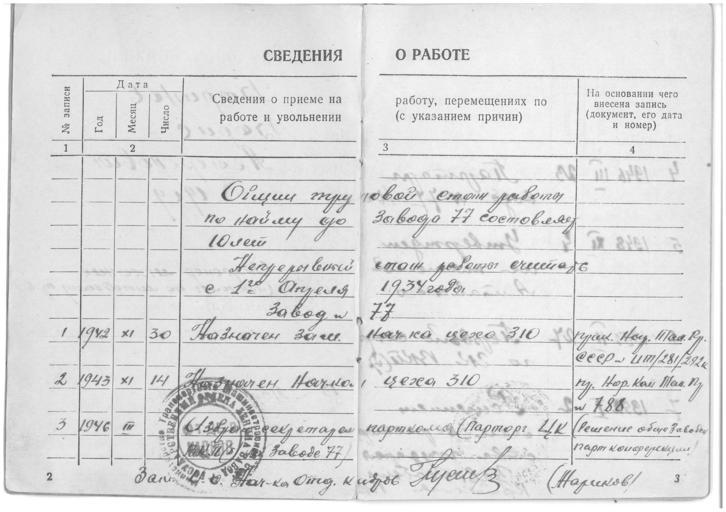 СВЕДЕНИЯ О РАБОТЕ
№ записи
Дата
Год
Месяц
Число
Сведения о приеме на
работе и увольнении
работу, перемещениях по
(с указанием причин)
На основании чего
внесена запись
(документ, его дата
и номер)
1 2 3 4
Общий трудовой стаж работы
по найму до Завода 77 составляет
10 лет
Непрерывный стаж работы считать
с 1го Апреля 1934 года
Завод № 77
1 1942 XI 30 Назначен Зам. нач-ка цеха 310
СССР № 281/292к
2 1943 XI 14 Назначен Нач-ком цеха 310
№ 788
3 1946 III секретарем парткома (Парторг ЦК
на Заводе 77)
(Решение общезаводск
парт конференции)
Нач-ка Отд. кадров (Жариков)
2
3